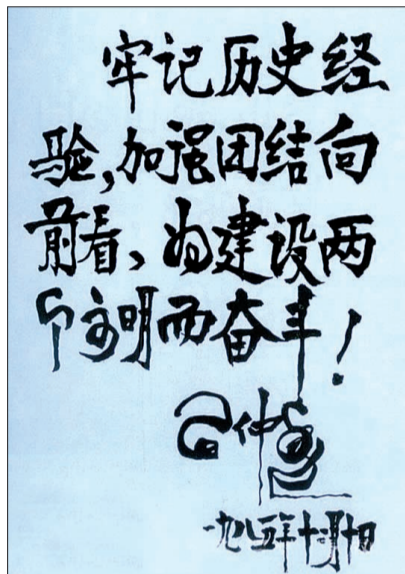 牢记历史经
验,加强团结向
前看,为建设两
个文明而奋斗!
仲
一九八五年十一月十日